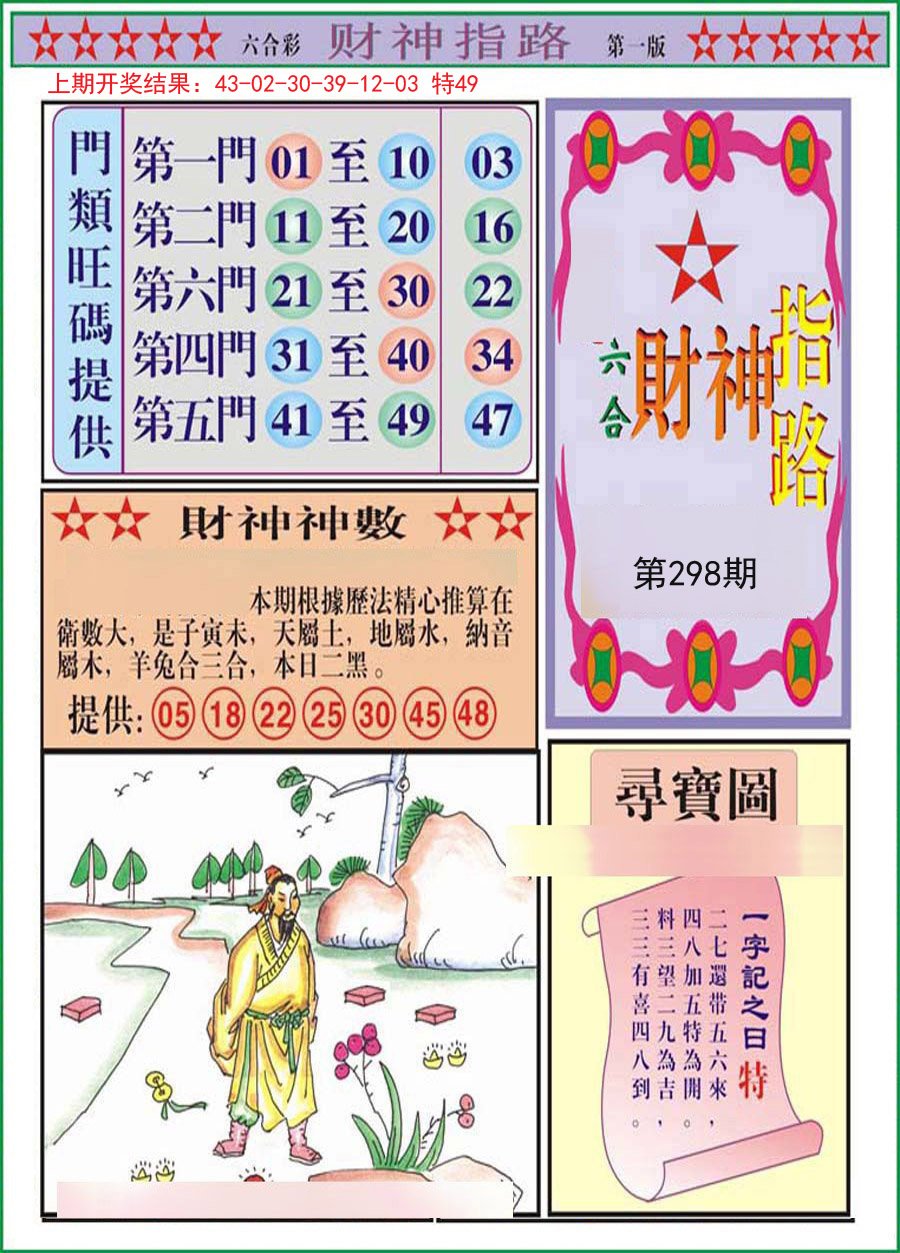 六合彩 财神指路 第一版
上期开奖结果：43-02-30-39-12-03 特49
門類旺碼提供
第一門 01 至 10 03
第二門 11 至 20 16
第六門 21 至 30 22
第四門 31 至 40 34
第五門 41 至 49 47
六合
財神
指路
第298期
財神神數
本期根據歷法精心推算在
衛數大，是子寅未，天屬土，地屬水，納音
屬木，羊兔合三合，本日二黑。
提供: 05 18 22 25 30 45 48
尋寶圖
一字記之日 特
二七還带五六來，
四八加五特為開。
料三望二九為吉，
三三有喜四八到。